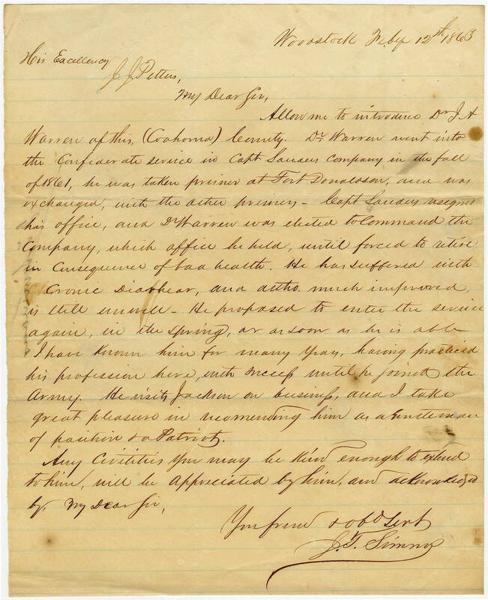 Woodstock Feby 12th 1863
His Excellency
J. J. Pettus,
My Dear Sir,
Allow me to introduce Dr J. A
Warren of this (Coahoma) County. Dr Warren went into
the Confederate service in Capt company in the fall
of 1861, he was taken prisner at Fort Donaldson, and was
exchanged, with the other prisners - Capt resigned
his office, and Dr Warren was elected to Command the
Company, which office he held, until forced to retire
in Consequence of bad health. He has suffered with
Cronic Diarhear, and altho. much improved
is still unwell - He proposed to enter the service
again, in the spring, or as soon as he is able
I have known him for many years, having practiced
his profession here, with success until he joined the
Army. He visits Jackson on business, and I take
great pleasure in recomending him as a Gentleman
of position & a Patriot.
Any Civilities you may be kind enough to extend
to him, will be appreciated by him, and acknowledged
by My Dear Sir,
Your friend & obt Servt
J. T. Simms